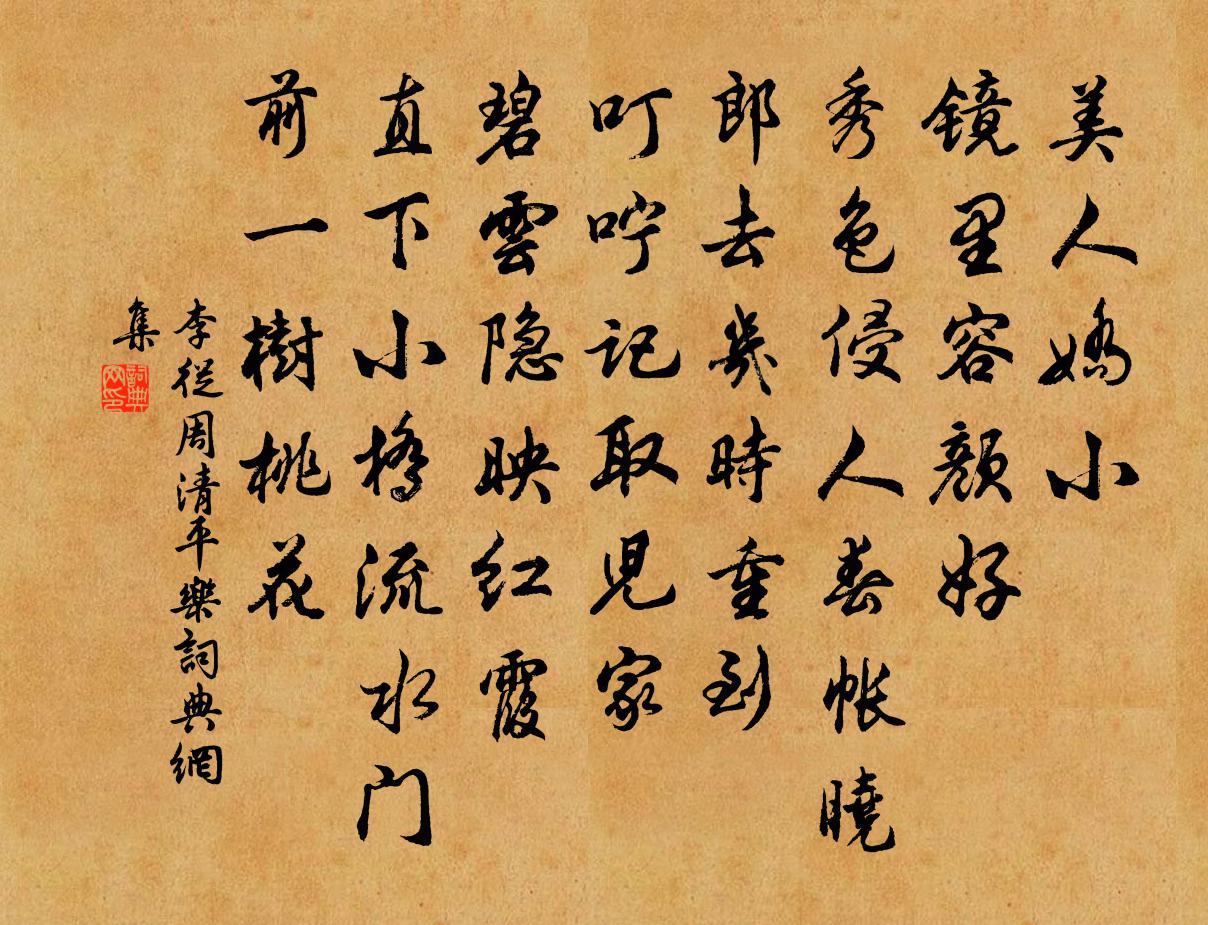 美人嬌小
镜里容颜好
秀色侵人春帐曉
郎去幾時重到
叮咛记取児家
碧雲隐映红霞
直下小橋流水门
前一樹桃花
李從周清平樂詞典網
集
詞典
网印